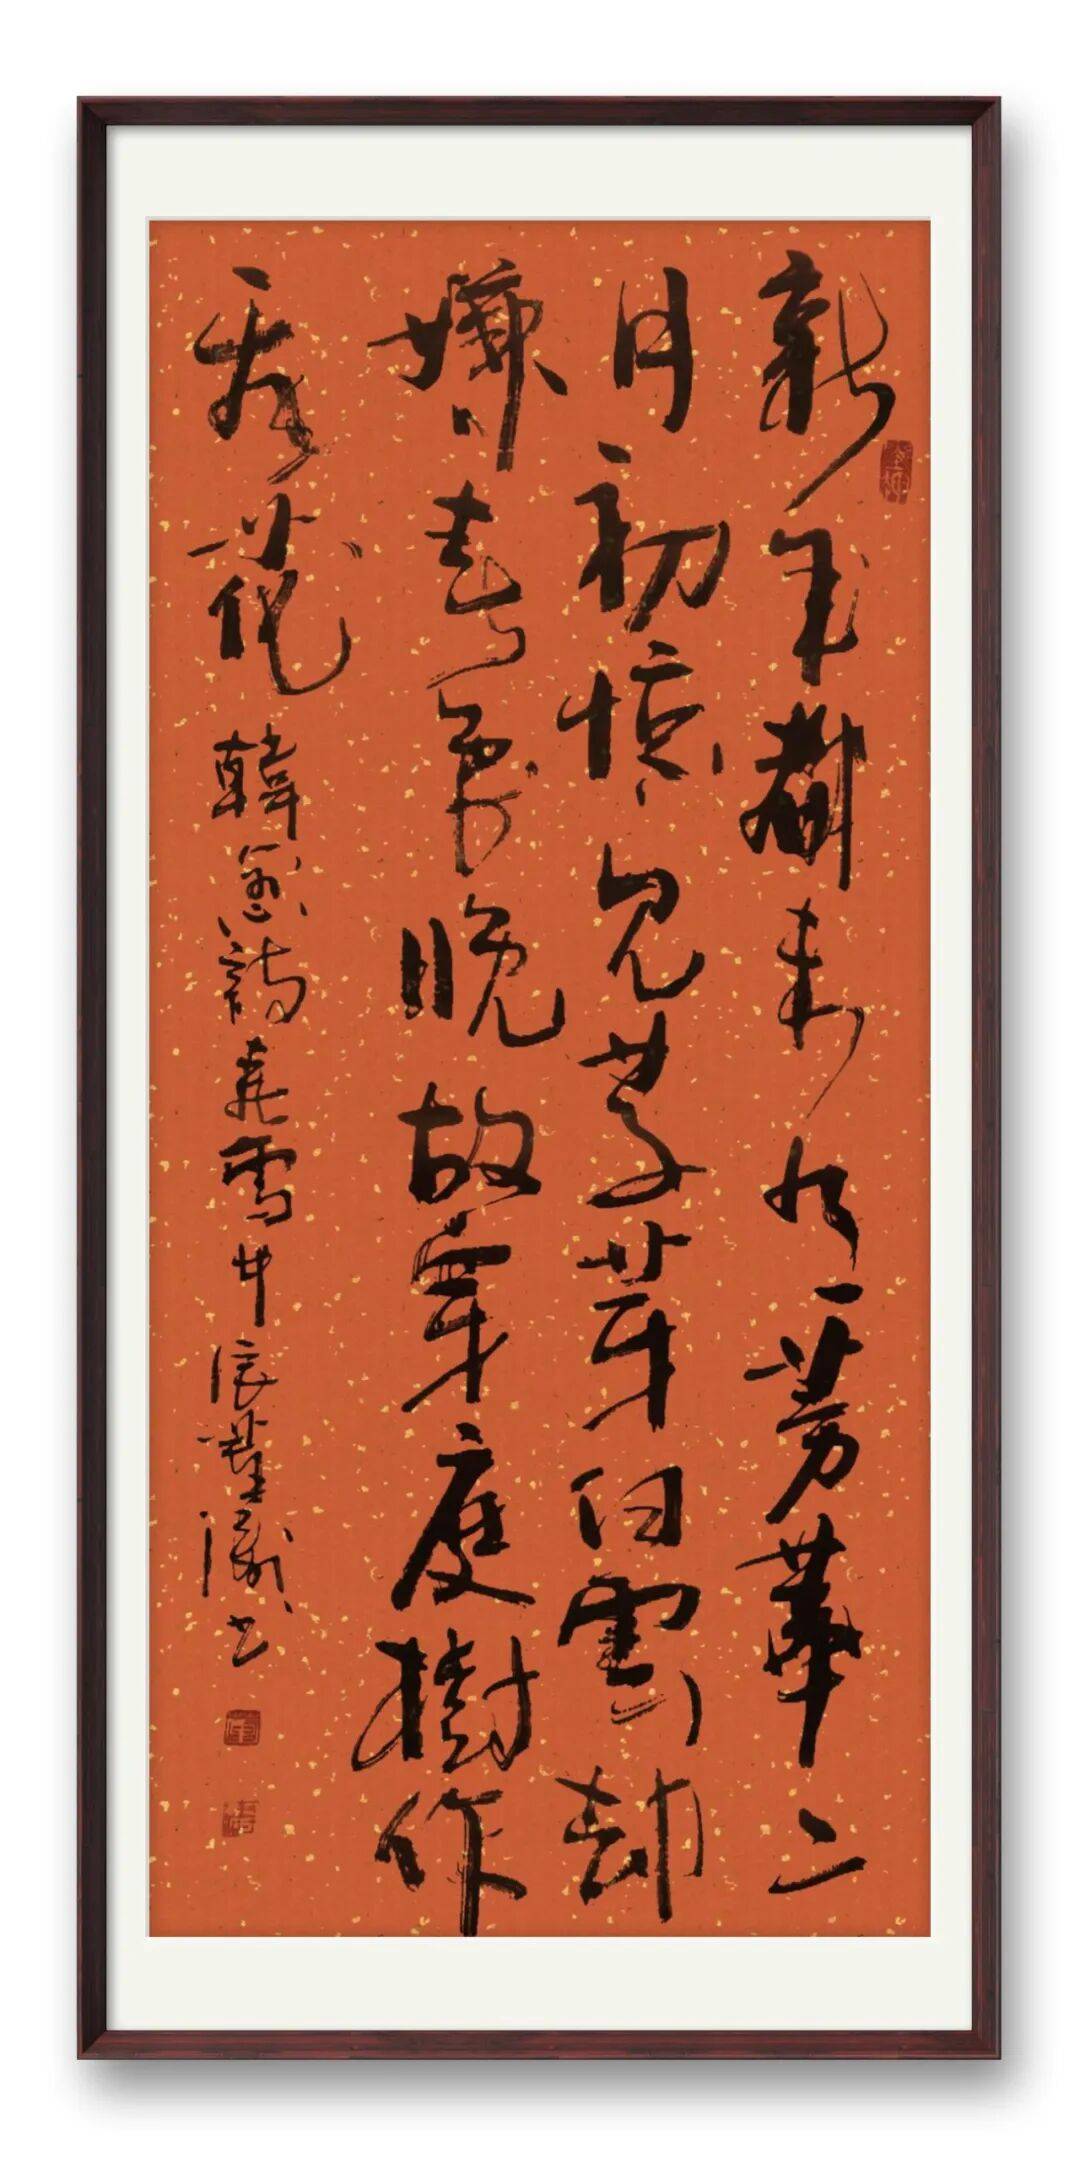 新年都未有芳華二
月初惊見草芽白雪却
嫌春色晚故穿庭樹作
飛花 韓愈詩春雪 甲辰 书